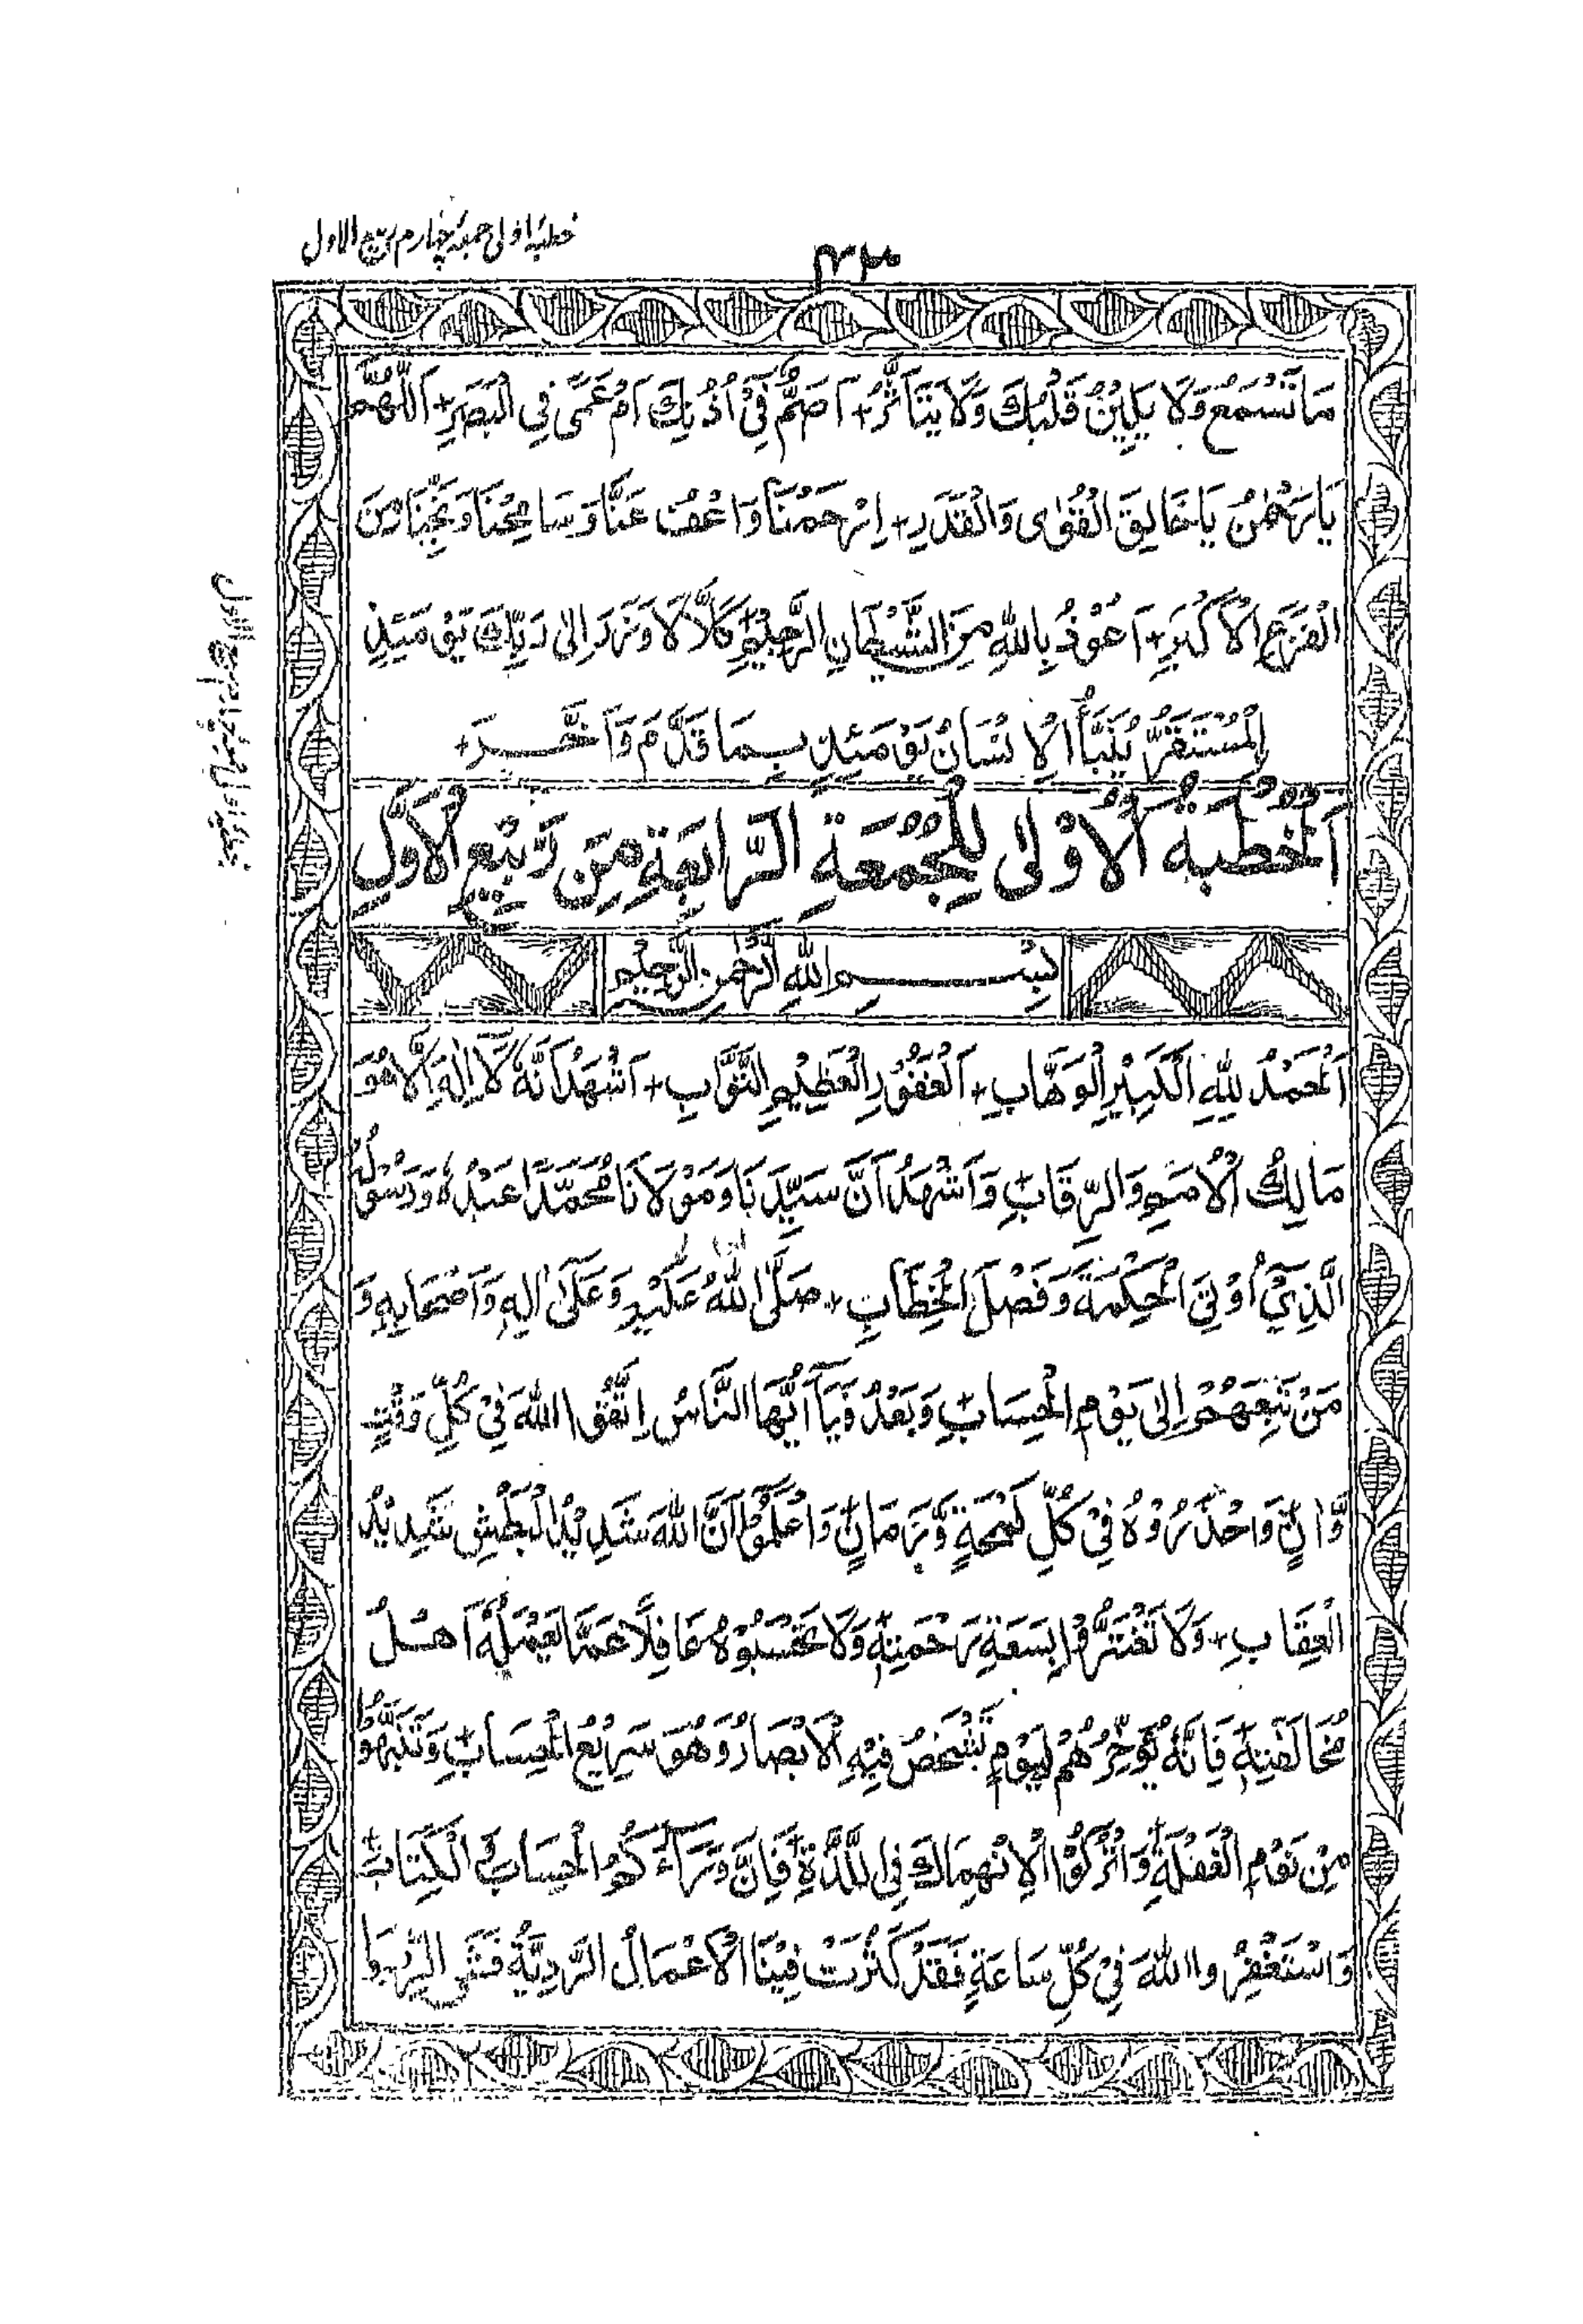 خطبۂ اولی جمعۂ چہارم ربیع الاول
مَا تَسْمَعُ وَلَا يَلِيْنُ قَلْبُكَ وَلَا يَتَاَثَّرُ + اَصَمٌّ فِيْ اُذُنِكَ اَمْ عَمًى فِي الْبَصَرِ + اَللّٰهُمَّ
يَا رَحْمٰنُ يَا خَالِقَ الْقُوٰى وَالْقَدَرِ + اِرْحَمْنَا وَاعْفُ عَنَّا وَسَامِحْنَا وَنَجِّنَا مِنَ
الْفَزَعِ الْاَكْبَرِ + اَعُوْذُ بِاللهِ مِنَ الشَّيْطَانِ الرَّجِيْمِ + كَلَّا لَا وَزَرَ اِلٰى رَبِّكَ يَوْمَئِذِ
الْمُسْتَقَرُّ يُنَبَّأُ الْاِنْسَانُ يَوْمَئِذٍ بِمَا قَدَّمَ وَاَخَّرَ +
اَلْخُطْبَةُ الْاُوْلٰى لِلْجُمُعَةِ الرَّابِعَةِ مِنْ رَبِيْعِ الْاَوَّلِ
بِسْمِ اللهِ الرَّحْمٰنِ الرَّحِيْمِ
اَلْحَمْدُ لِلّٰهِ الْكَبِيْرِ الْوَهَّابِ + اَلْغَفُوْرِ الْعَظِيْمِ التَّوَّابِ + اَشْهَدُ اَنَّهُ لَا اِلٰهَ اِلَّا هُوَ
مَالِكُ الْاُمَمِ وَالرِّقَابِ + وَاَشْهَدُ اَنَّ سَيِّدَنَا وَمَوْلَانَا مُحَمَّدًا عَبْدُهُ وَرَسُوْلُهُ
الَّذِيْ اُوْتِيَ الْحِكْمَةَ وَفَصْلَ الْخِطَابِ + صَلَّى اللهُ عَلَيْهِ وَعَلٰى اٰلِهِ وَاَصْحَابِهِ وَ
مَنْ تَبِعَهُمْ اِلٰى يَوْمِ الْحِسَابِ + وَبَعْدُ فَيَا اَيُّهَا النَّاسُ اِتَّقُوا اللهَ فِيْ كُلِّ وَقْتٍ
وَّاٰنٍ وَاحْذَرُوْهُ فِيْ كُلِّ لَمْحَةٍ وَّزَمَانٍ + وَاعْلَمُوْا اَنَّ اللهَ شَدِيْدُ الْبَطْشِ شَدِيْدُ
الْعِقَابِ + وَلَا تَغْتَرُّوْا بِسَعَةِ رَحْمَتِهِ + وَلَا تَحْسَبُوْهُ غَافِلًا عَمَّا يَعْمَلُهُ اَهْلُ
مُخَالَفَتِهِ + فَاِنَّهُ يُؤَخِّرُهُمْ لِيَوْمٍ تَشْخَصُ فِيْهِ الْاَبْصَارُ وَهُوَ سَرِيْعُ الْحِسَابِ + وَتَنَبَّهُوْا
مِنْ نَوْمِ الْغَفْلَةِ + وَاتْرُكُوا الْاِنْهِمَاكَ فِي اللَّذَّةِ + فَاِنَّ وَرَاءَكُمُ الْحِسَابُ الْكِتَابُ +
وَاسْتَغْفِرُوا اللهَ فِيْ كُلِّ سَاعَةٍ فَقَدْ كَثُرَتْ فِيْنَا الْاَعْمَالُ الرَّدِيَّةُ فَشَى الرِّبٰوا
خطبۂ اولی جمعۂ چہارم ربیع الاول